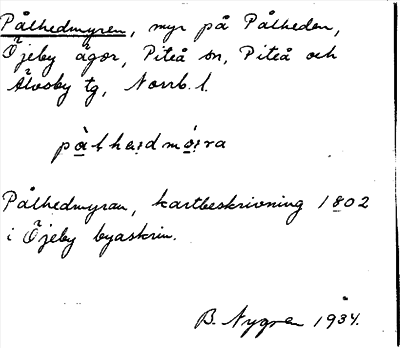 Pålhedmyren, myr på Pålheden,
Öjeby ägor, Piteå sn, Piteå och
Älvsby tg, Norrb. l.
Pålhedmyran, kartbeskrivning 1802
i Öjeby byaskrin.
B. Nygren 1934.